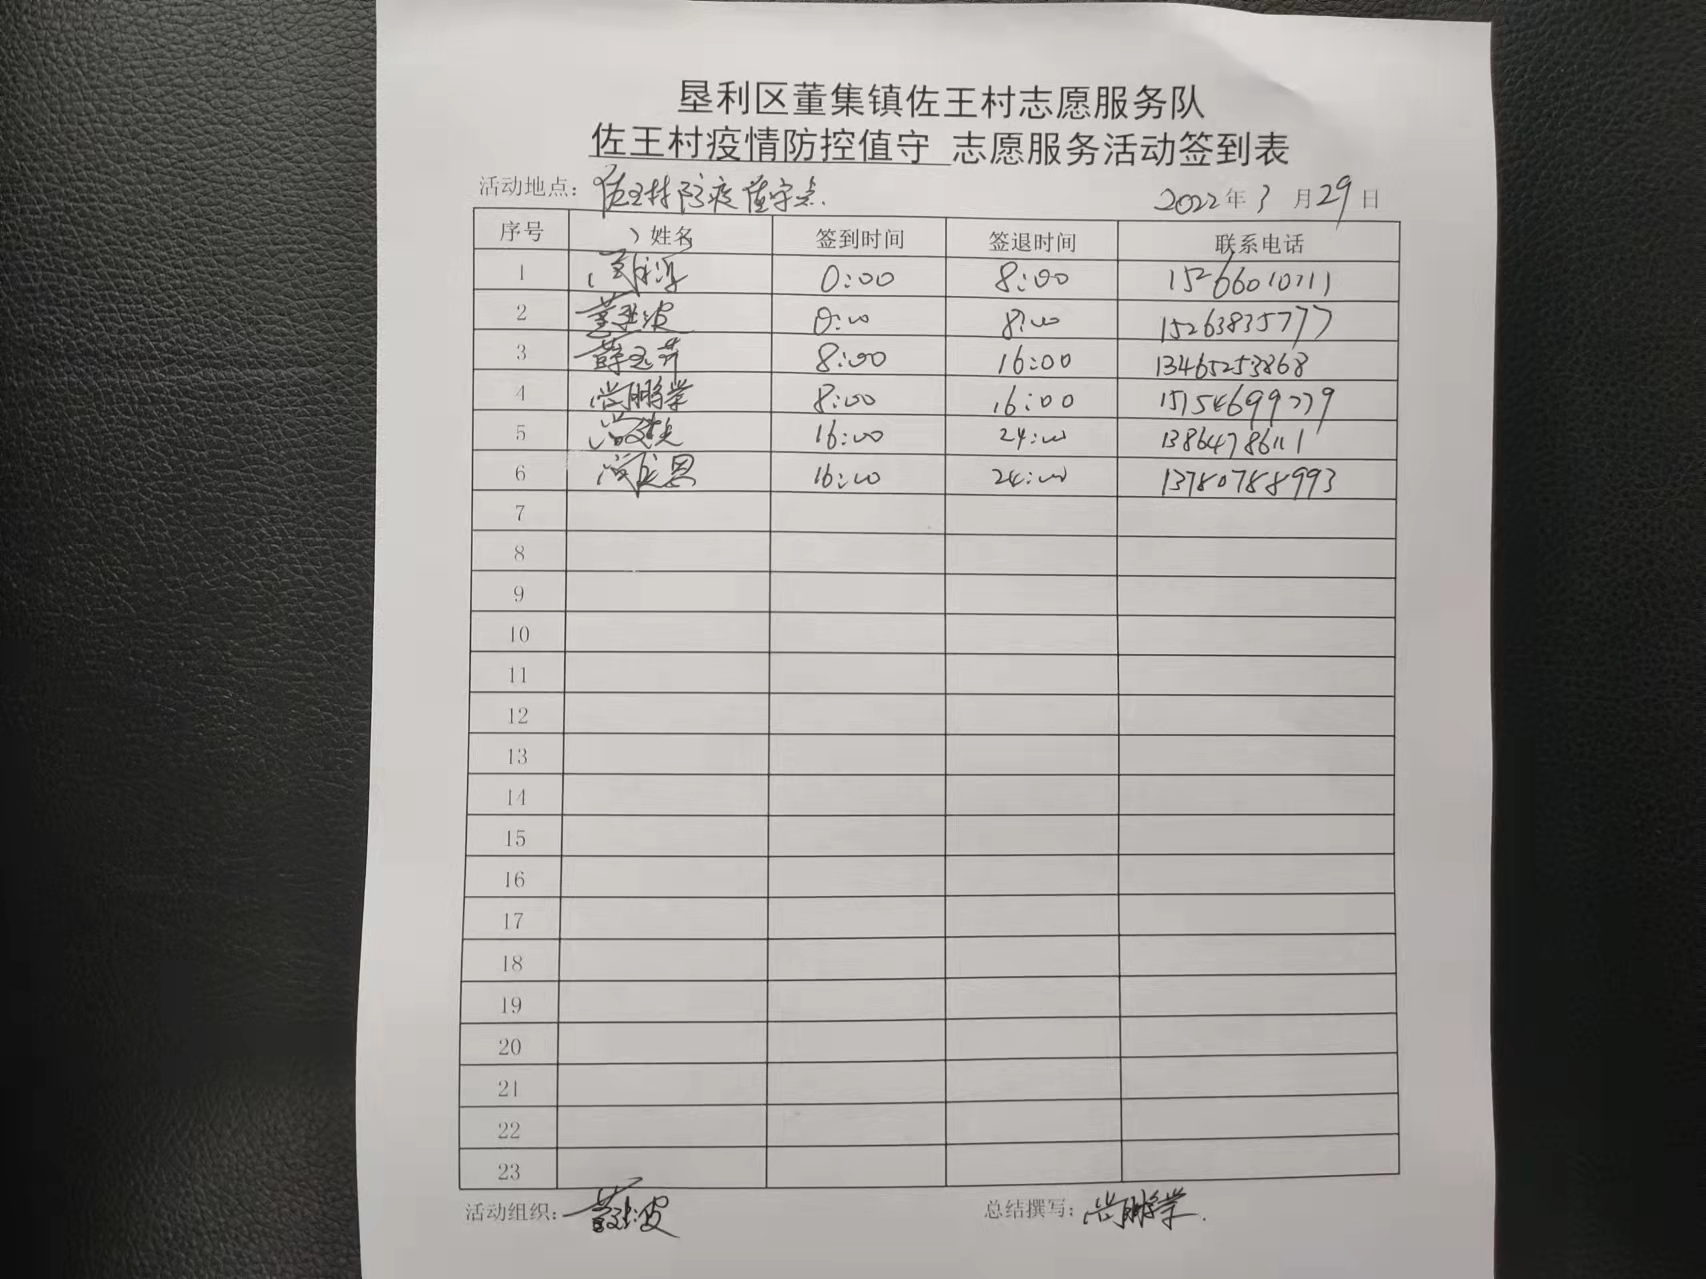 垦利区董集镇佐王村志愿服务队
佐王村疫情防控值守 志愿服务活动签到表
活动地点: 佐王村防疫值守点. 2022年3月29日
序号 姓名 签到时间 签退时间 联系电话
1 0:00 8:00 15266010711
2 董延波 0:00 8:00 15263835777
3 薛玉芹 8:00 16:00 13465253868
4 尚鹏学 8:00 16:00 15154699779
5 尚 16:00 24:00 13864786111
6 尚 16:00 24:00 13780788993
7
8
9
10
11
12
13
14
15
16
17
18
19
20
21
22
23
活动组织: 董延波 总结撰写: 尚鹏学.